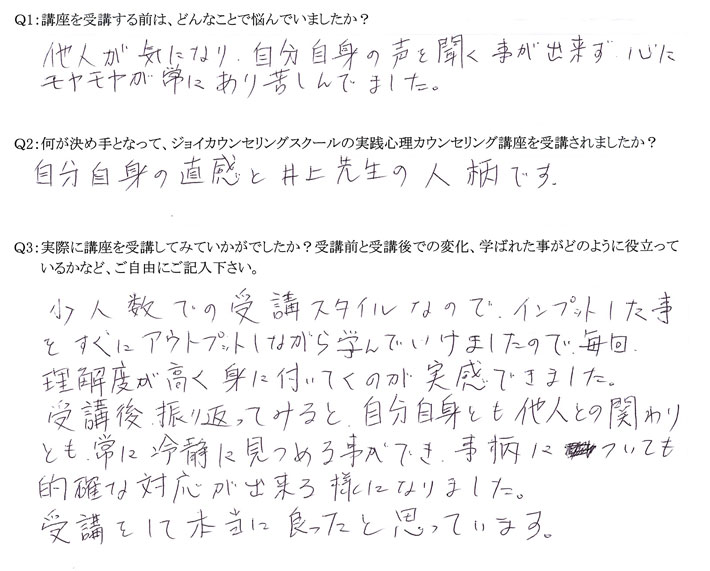 Q1：講座を受講する前は、どんなことで悩んでいましたか？
他人が気になり、自分自身の声を聞く事が出来ず、心に
モヤモヤが常にあり苦しんでました。
Q2：何が決め手となって、ジョイカウンセリングスクールの実践心理カウンセリング講座を受講されましたか？
自分自身の直感と井上先生の人柄です。
Q3：実際に講座を受講してみていかがでしたか？受講前と受講後での変化、学ばれた事がどのように役立って
いるかなど、ご自由にご記入下さい。
少人数での受講スタイルなので、インプットした事
をすぐにアウトプットしながら学んでいけましたので、毎回、
理解度が高く身に付いてくのが実感できました。
受講後、振り返ってみると、自分自身とも他人との関わり
とも、常に冷静に見つめる事ができ、事柄についても
的確な対応が出来る様になりました。
受講をして本当に良ったと思っています。